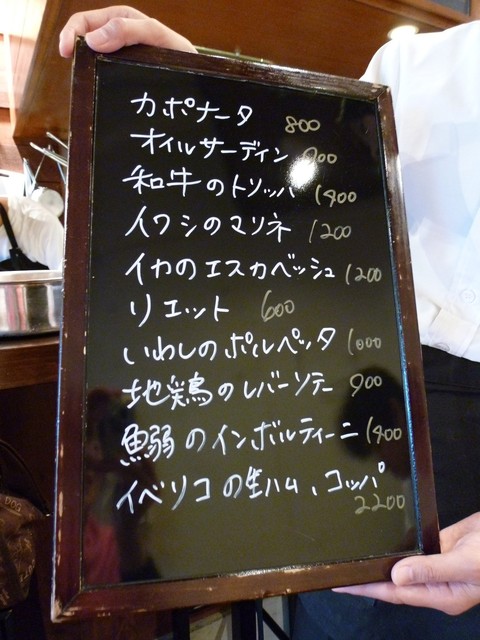 カポナータ 800
オイルサーディン 900
和牛のトリッパ 1400
イワシのマリネ 1200
イカのエスカベッシュ 1200
リエット 600
いわしのポルペッタ 1000
地鶏のレバーソテー 900
魚弱のインボルティーニ 1400
イベリコの生ハム、コッパ
2200